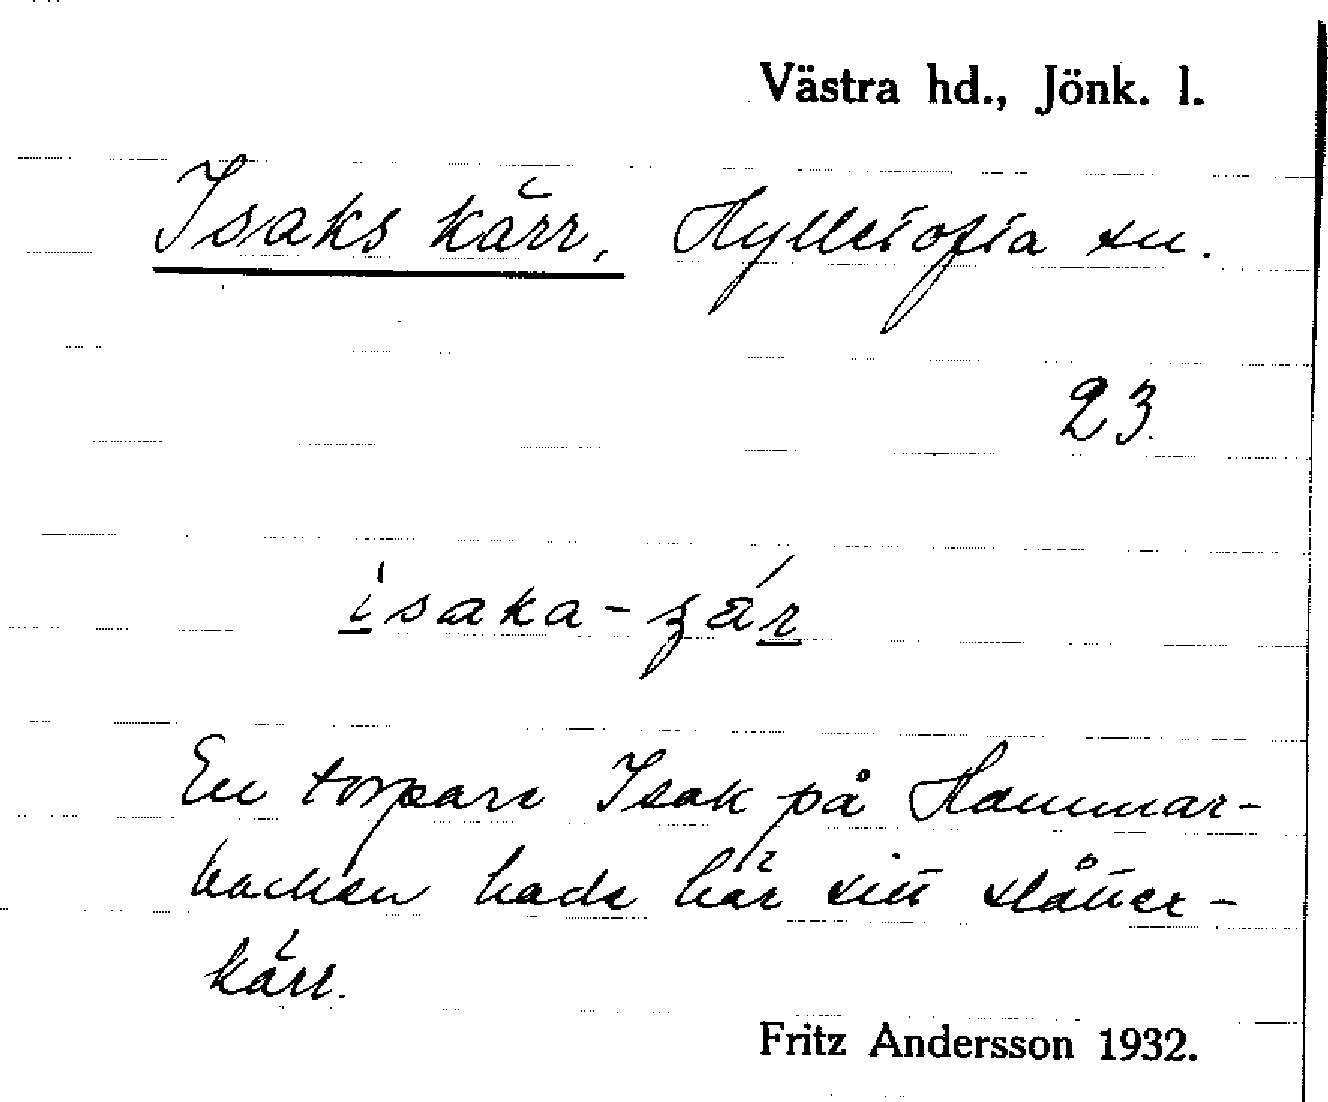 Västra hd., Jönk. l.
Isaks kärr, Hylletofta sn.
23.
isaka-
En torpare Isak på Hammar-
backen hade här sitt slåtter-
kärr.
Fritz Andersson 1932.